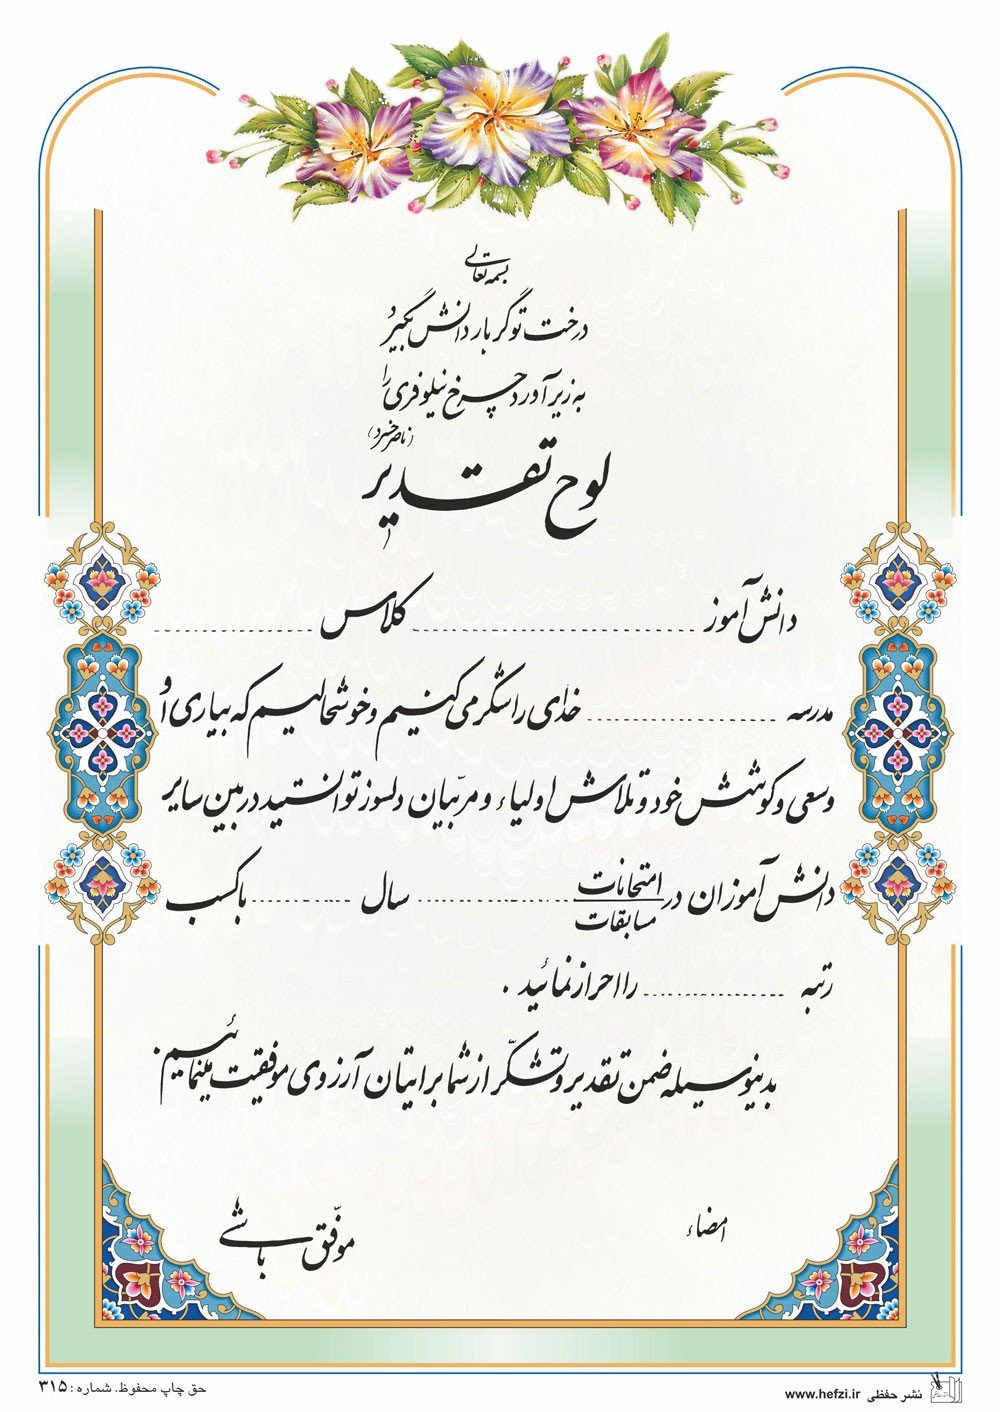 بسمه تعالی
درخت تو گر بار دانش بگیرد
به زیر آورد چرخ نیلوفری را
(ناصر خسرو)
لوح تقدیر
دانش آموز .................... کلاس ....................
مدرسه .................... خدای را شکر می کنیم و خوشحالیم که بیاری او
و سعی و کوشش خود و تلاش اولیاء و مربّیان دلسوز توانستید در بین سایر
دانش آموزان در امتحانات .................... سال .................... با کسب
مسابقات
رتبه .................... را احراز نمائید .
بدینوسیله ضمن تقدیر و تشکّر از شما برایتان آرزوی موفقیت مینمائیم.
امضاء
موفّق باشی
نشر حفظی www.hefzi.ir
حق چاپ محفوظ. شماره : ۳۱۵